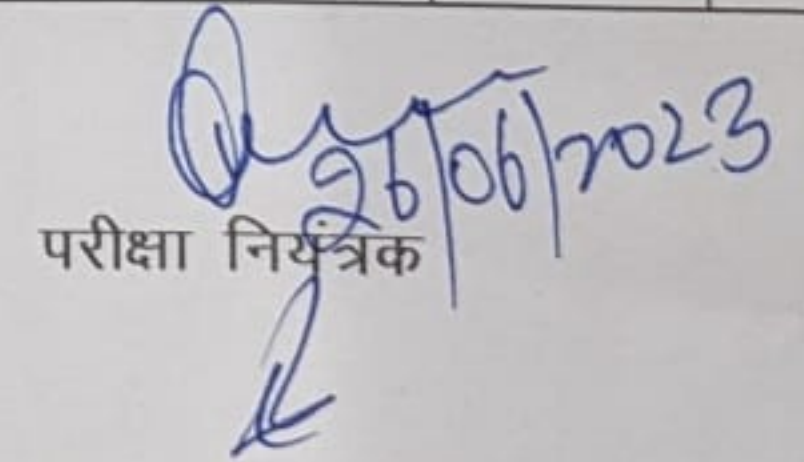 26/06/2023
परीक्षा नियंत्रक